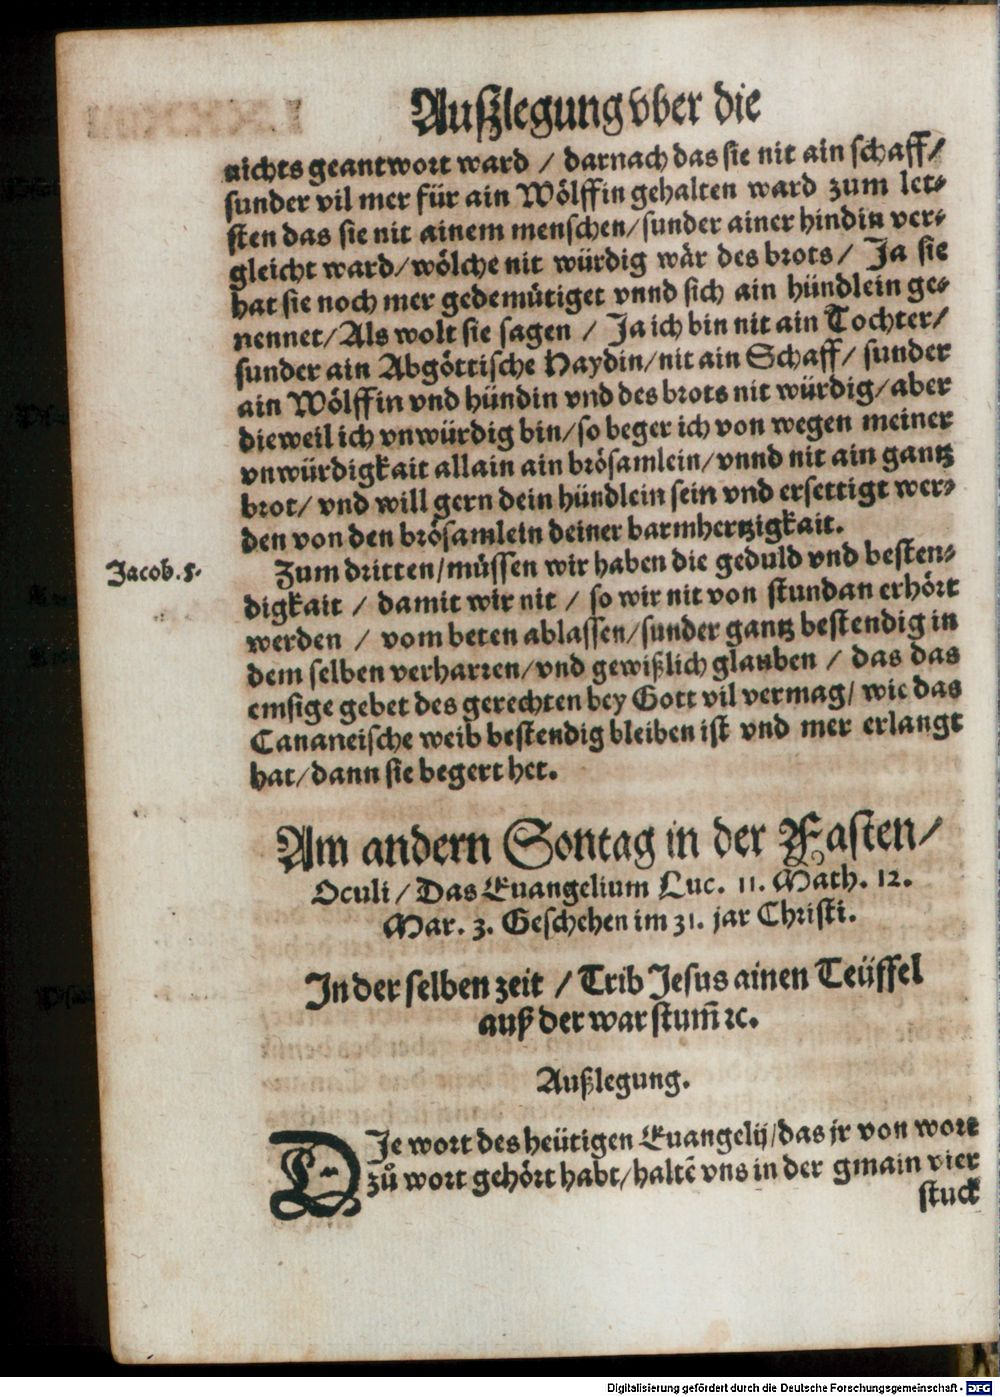 Außlegung vber die
nichts geantwort ward / darnach das sie nit ain schaff/
sunder vil mer für ain Wölffin gehalten ward zum let-
sten das sie nit ainem menschen/sunder ainer hindin ver-
gleicht ward/wölche nit würdig wär des brots / Ja sie
hat sie noch mer gedemütiget vnnd sich ain hündlein ge-
nennet/Als wolt sie sagen / Ja ich bin nit ain Tochter/
sunder ain Abgöttische Haydin/nit ain Schaff/ sunder
ain Wölffin vnd hündin vnd des brots nit würdig/aber
dieweil ich vnwürdig bin/so beger ich von wegen meiner
vnwürdigkait allain ain brösamlein/vnnd nit ain gantz
brot/ vnd will gern dein hündlein sein vnd ersettigt wer-
den von den brösamlein deiner barmhertzigkait.
Jacob. 5.
Zum dritten/müssen wir haben die geduld vnd besten-
digkait / damit wir nit / so wir nit von stundan erhört
werden / vom beten ablassen/sunder gantz bestendig in
dem selben verharren/vnd gewißlich glauben / das das
emsige gebet des gerechten bey Gott vil vermag/ wie das
Cananeische weib bestendig bleiben ist vnd mer erlangt
hat/dann sie begert het.
Am andern Sontag in der Fasten/
Oculi / Das Euangelium Luc. 11. Math. 12.
Mar. 3. Geschehen im 31. jar Christi.
In der selben zeit / Trib Jesus ainen Teüffel
auß der war stum̃ ꝛc.
Außlegung.
DJe wort des heütigen Euangelij/das jr von wort
zů wort gehört habt/haltẽ vns in der gmain vier
stuck
Digitalisierung gefördert durch die Deutsche Forschungsgemeinschaft - DFG